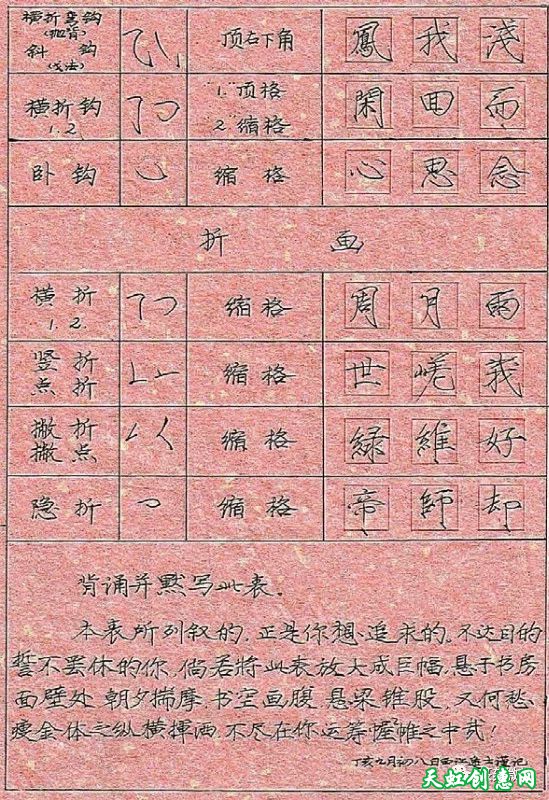 横折弯钩
(抛背)
斜钩
(戈法)
顶右下角
鳳 我 淺
横折钩
1. 2.
1. 顶格
2. 缩格
閑 回 而
卧钩
缩格
心 思 念
折画
横折
1. 2.
缩格
周 月 雨
竖折
点折
缩格
世 嵯 我
撇折
撇点
缩格
綠 維 好
隐折
缩格
帝 師 却
背诵并默写此表.
本表所列叙的,正是你想追求的,不达目的
誓不罢休的你,倘若将此表放大成巨幅,悬于书房
面壁处,朝夕揣摩,书空画腹,悬梁锥股,又何愁
瘦金体之纵横挥洒,不尽在你运筹握帷之中哉!
丁亥九月初八日
谨记
天虹创意网